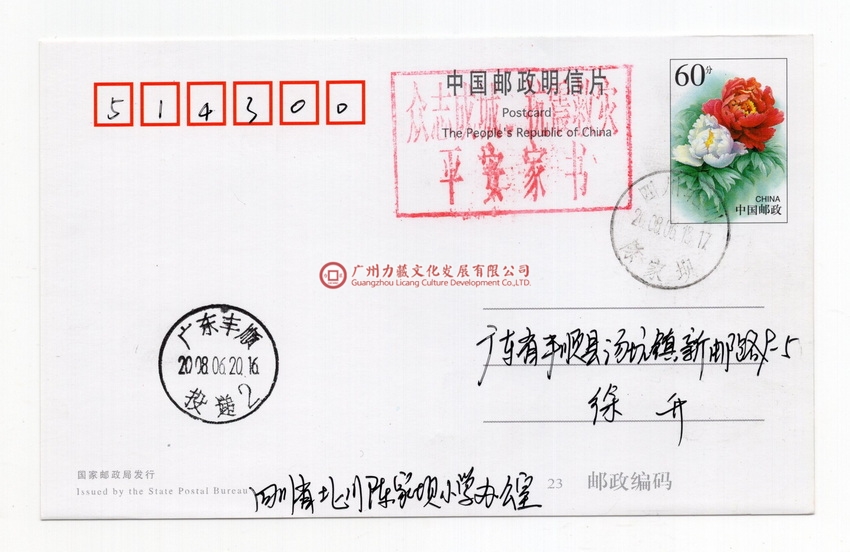 514300
中国邮政明信片
Postcard
The People's Republic of China
众志成城 抗震救灾
平安家书
60分
CHINA
中国邮政
2008.06.16.17
陈家坝
广州力藏文化发展有限公司
Guangzhou Licang Culture Development Co.,LTD.
广东丰顺
2008.06.20.16
投递2
广东省丰顺县汤坑镇新邮路
徐升
国家邮政局发行
Issued by the State Postal Bureau
四川省北川陈家坝小学办公室
23 邮政编码